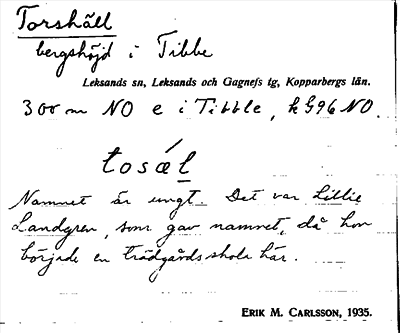 Torshäll
bergshöjd i Tibbe
Leksands sn, Leksands och Gagnefs tg, Kopparbergs län.
300 m NO e i Tibble, k G96 NO.
tosæl
Namnet är ungt. Det var Lillie
Landgren, som gav namnet, då hon
började en trädgårdsskola här.
ERIK M. CARLSSON, 1935.